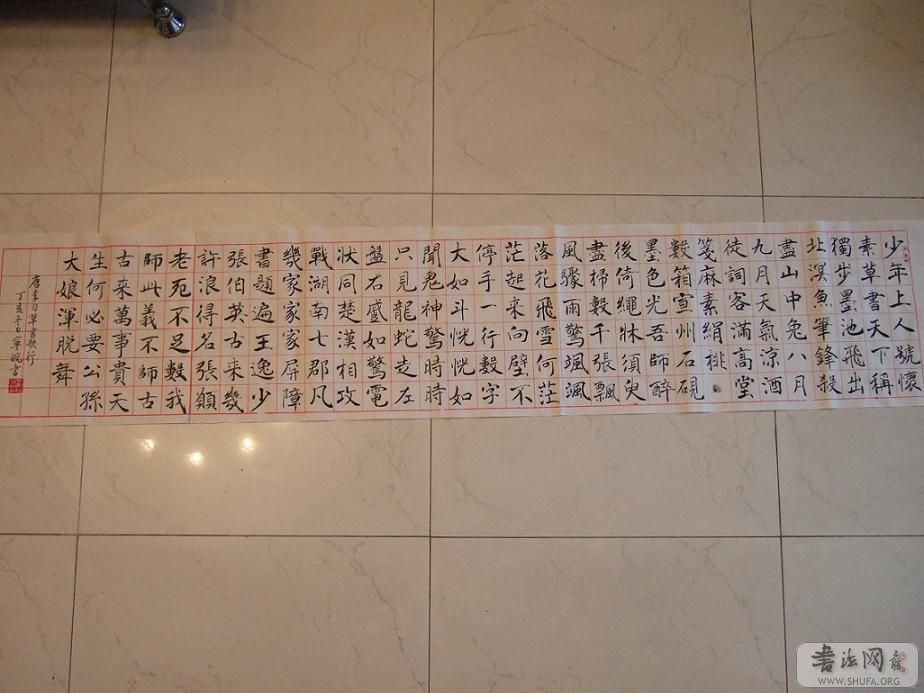 少年上人號懷
素草書天下稱
獨步墨池飛出
北溟魚筆鋒殺
盡山中兔八月
九月天氣涼酒
徒詞客滿高堂
箋麻素絹桃
數箱宣州石硯
墨色光吾師醉
後倚繩牀須臾
盡掃數千張飄
風驟雨驚颯颯
落花飛雪何茫
茫起來向壁不
停手一行數字
大如斗恍恍如
聞鬼神驚時時
只見龍蛇走左
盤石蹙如驚電
狀同楚漢相攻
戰湖南七郡凡
幾家家家屏障
書題遍王逸少
張伯英古來幾
許浪得名張顛
老死不足數我
師此義不師古
古來萬事貴天
生何必要公孫
大娘渾脫舞
唐李白草書歌行
丁亥冬日寧書
书法网
WWW.SHUFA.ORG